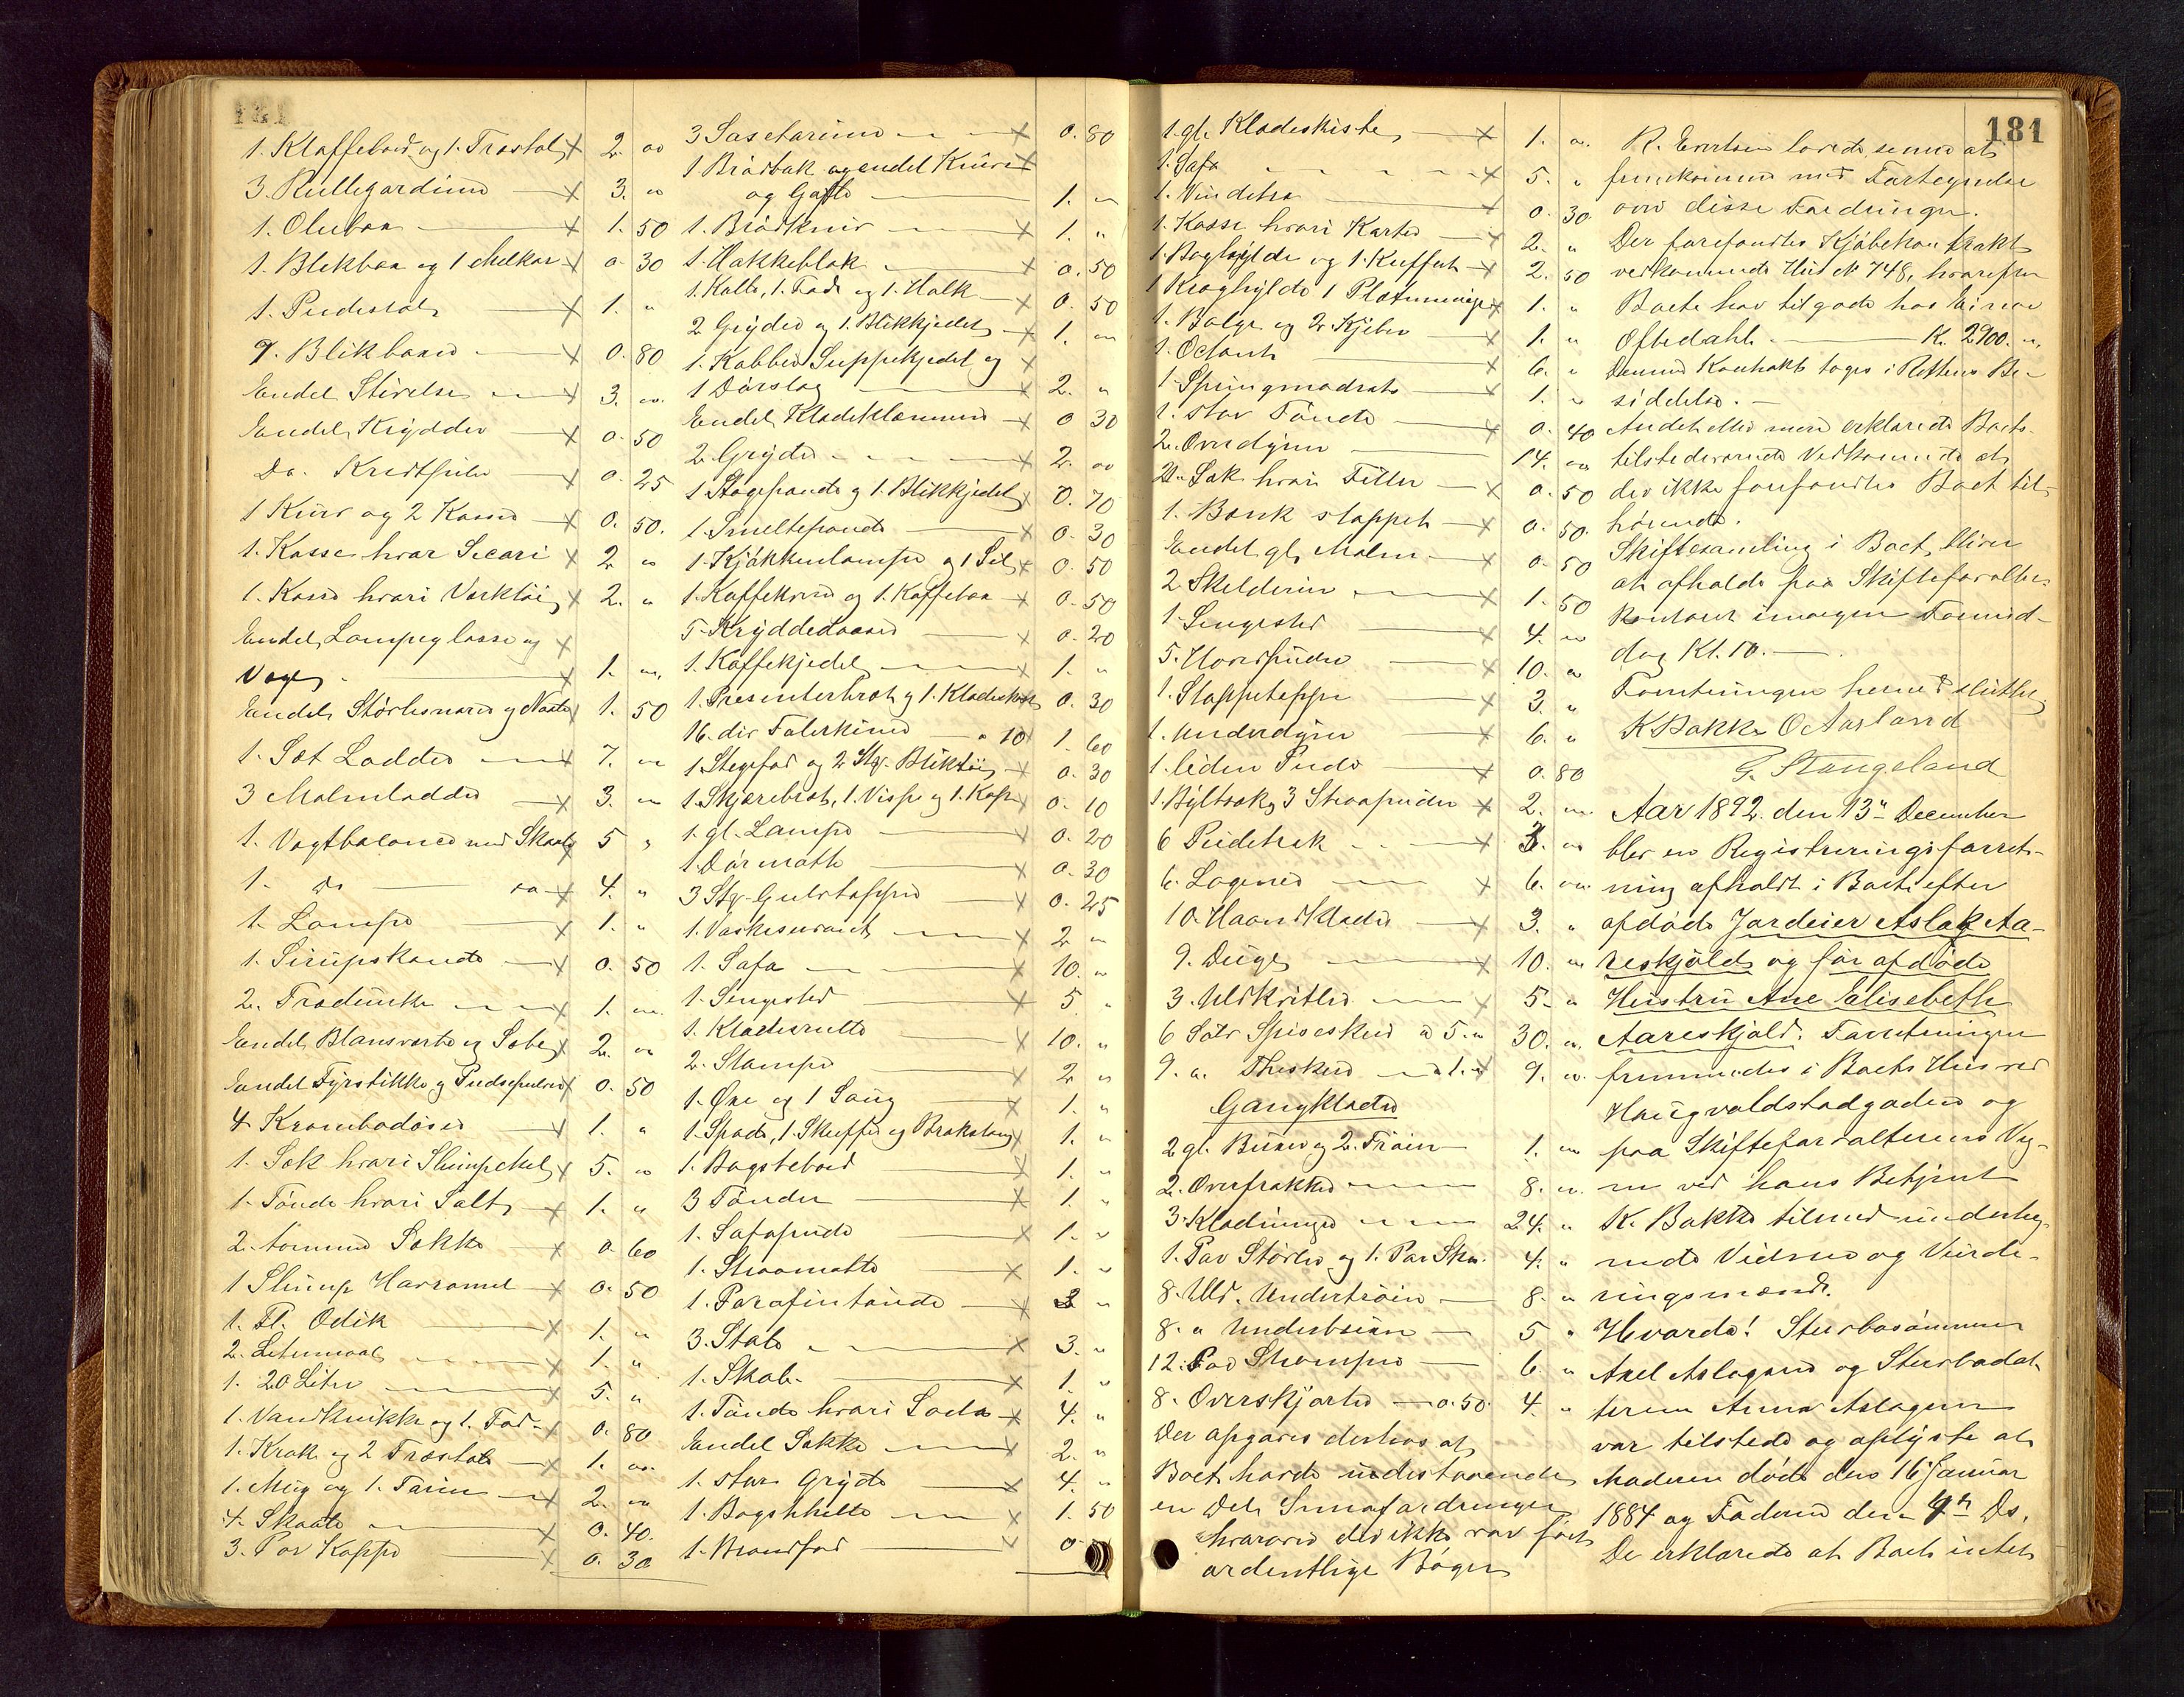 181
1. Klaffebord og 1. Træstol 2 00
3. Rullegardiner 3. "
1. Oliebøa 1. 50
1. Blikbøa og 1 Melkar 0 30
1. Pudestol 1. "
9. Blikboxer 0. 80
Endel Stivelse 3. "
Endel Krydder 0. 50
Do. Kridtpiber 0. 25
1 Kurv og 2 Kasser 0. 50.
1. Kasse hvor Secari 2 "
1. Kasse hvori Værktøi 2. "
Endel Lampeglasse og
Væger 1. "
Endel Støvlesnører og Naale 1. 50
1. Sæt Lodder 7. "
3 Malmlodder 3. "
1. Vægtbalance med Skaale 5 "
1. Do 4. "
1. Lampe 1. "
1. Sirupskande 0. 50
2. Trædunke 1. "
Endel Blansværte og Sæbe 2. "
Endel Fyrstikker og Pudsepulver 0. 50
4 Krambodøser 1. "
1. Sæk hvori Slumpekul 5. "
1. Tønde hvori Salt 1. "
2. tomme Sække 0. 60
1 Slump Havremel 0. 50
1. Fl. Edik 1. "
2. Litermaal 1. "
1. 20 Liter 5. "
1. Vandknikke og 1. Fad 0. 80
1. Krak og 2 Træstole 1. "
1. Mug og 1. Tarin 2. "
4. Skaale 0. 40.
3. Par Kopper 0. 30
3 Sosetariner 0. 80
1 Brødbak og endel Knive
og Gafle 1. "
1. Brødkniv 1. "
1. Hakkeblok 0. 50
1. Kolle, 1. Fade og 1. Holk 0. 50
2 Gryder og 1. Blikkjedel 1. "
1. Kobber Suppekjedel og
1 Dørslag 2. "
Endel Klædeklemmer 0 30
2. Gryder 2. 00
1 Stegepande og 1. Blikkjedel 0. 70
1. Smeltepande 0. 30
1. Kjøkkenlampe og 1 Sil 0. 50
1. Kaffekværn og 1. Kaffeboa 0. 50
5. Krydderdaaser 0. 20
1. Kaffekjedel 1. "
1. Presenterbræt og 1. Klædeskost 0. 30
16. div Talerkener " 10 1. 60
1 Stegefad og 2 Stk. Bliktøi 0. 30
1. Skjærebræt, 1. Visp og 1. Kop 0. 10
1. gl. Lampe 0. 20
1. Dørmatte 0. 30
3 Stk. Gulvtæpper 0. 25
1. Vaskeservant 2 "
1. Sofa 10. "
1. Sengested 5 "
1. Klæderulle 10. "
2. Stamper 2 "
1. Øxe og 1 Saug 1. "
1. Spade, 1. Skuffe og Brækstang 1. "
1. Bagstebord 1. "
3 Tønder 1. "
1. Sofapude 1. "
1. Straamatte 1. "
1. Parafintønde 3 "
3. Stole 3. "
1. Skab 1. "
1. Tønde hvori Soda 4. "
Endel Sække 2. "
1. stor Gryde 4. "
1. Bagstehelle 1. 50
1. Brandfad 0.
1. gl. Klædeskiste 1. "
1. Sofa 5. "
1. Vindetræ 0. 30
1. Kasse hvori Karter 2. "
1. Boghylde og 1. Kuffert 2. 50
1 Kroghylde 1 Platmenage 1. "
1. Balje og 2. Kjeler 1. "
1. Octant 6. "
1. Springmadrats 1. "
1. stor Tønde 0. 40
2. Overdyner 14. "
2. Sæk hvori Filler 0. 50
1. Bænk stoppet 0. 50.
Endel gl. Malm 0. 50
2 Skilderier 1. 50
1. Sengested 4. "
5. Hovedpuder 10. "
1. Stoppeteppe 3. "
1. Underdyne 6. "
1. liden Pude 0. 80
1. Byltsæk, 3 Straapuder 2. "
6 Pudetræk 3. "
6. Lagener 6. "
10. Haandklæder 3. "
9. Duge 10. "
3. Uldkvitler 5. "
6 Sølv Spiseskeer à 5." 30. "
9. " Theskeer à 1." 9. "
Gangklæder
2 gl. Buxer og 2. Trøier 1. "
2. Overfrakker 8. "
3. Klædninger 24. "
1. Par Støvler og 1. Par Sko 4. "
8. Uld. Undertrøier 8. "
8. " Underbuxer 5 "
12. Par Strømper 6. "
8. Overskjorter 0.50. 4. "
Der opgaves derhos at
Boet havde udestaaende
en Del Smaafordringer
hvorover der ikke var ført
ordentlige Bøger
R. Evertsen lovede senere at
fremkomme med Fortegnelse
over disse Fordringer.
Der forefandtes Kjøbekontrakt
vedkommende Hus No 748, hvorefter
Boet har tilgode hos Einar
Oftedahl Kr. 2900. "
Denne Kontrakt toges i Rettens Be-
siddelse.
Andet eller mere erklærede Boets
tilstedeværende Vedkommende at
der ikke forefandtes Boet til-
hørende.
Skiftesamling i Boet bliver
at afholde paa Skifteforvalter-
kontoret imorgen Formid-
dag Kl. 10.
Forretningen hermed sluttet
K Bakke O Aarland
G. Stangeland
Aar 1892. den 13de December
blev en Registreringsforret-
ning afholdt i Boet efter
afdøde Jordeier Aslak Aa-
reskjold og før afdøde
Hustru Ane Elisebeth
Aareskjold. Forretningen
fremmedes i Boets Hus ved
Haugvaldstadgaden og
paa Skifteforvalterens Veg-
ne ved hans Betjent
K. Bakke tilmed underteg-
nede Vidner og Vurde-
ringsmænd.
Hvorda! Stervbosønnen
Axel Aslagsen og Stervbodat-
teren Anna Aslagsen
var tilstede og oplyste at
Moderen døde den 16 Januar
1884 og Faderen den 4de Ds.
De erklærede at Boet intet